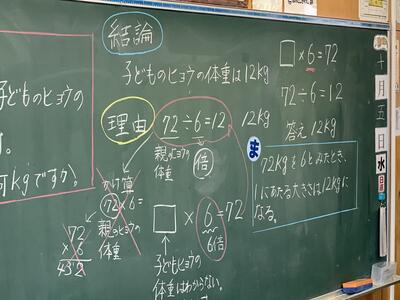 結論
子どものヒョウの体重は12kg
子どものヒョウの
す。
何kgですか。
理由
72÷6=12
12kg
親のヒョウの
体重
倍
かけ算
72×6=
親のヒョウの
体重
72
×6
432
□×6=72
6倍
子どもヒョウの
体重はわからない。
□×6=72
72÷6=12
答え 12kg
ま
72kgを6とみたとき、
1にあたる大きさは12kgに
なる。
十
月
五
日
水